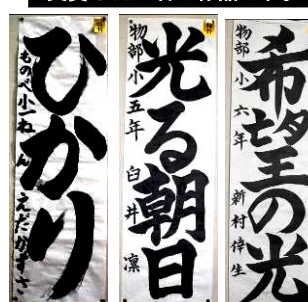 ひかり
ものべ小一ねん
光る朝日
物部小五年 臼井 凛
希望の光
物部小六年 新村倖生